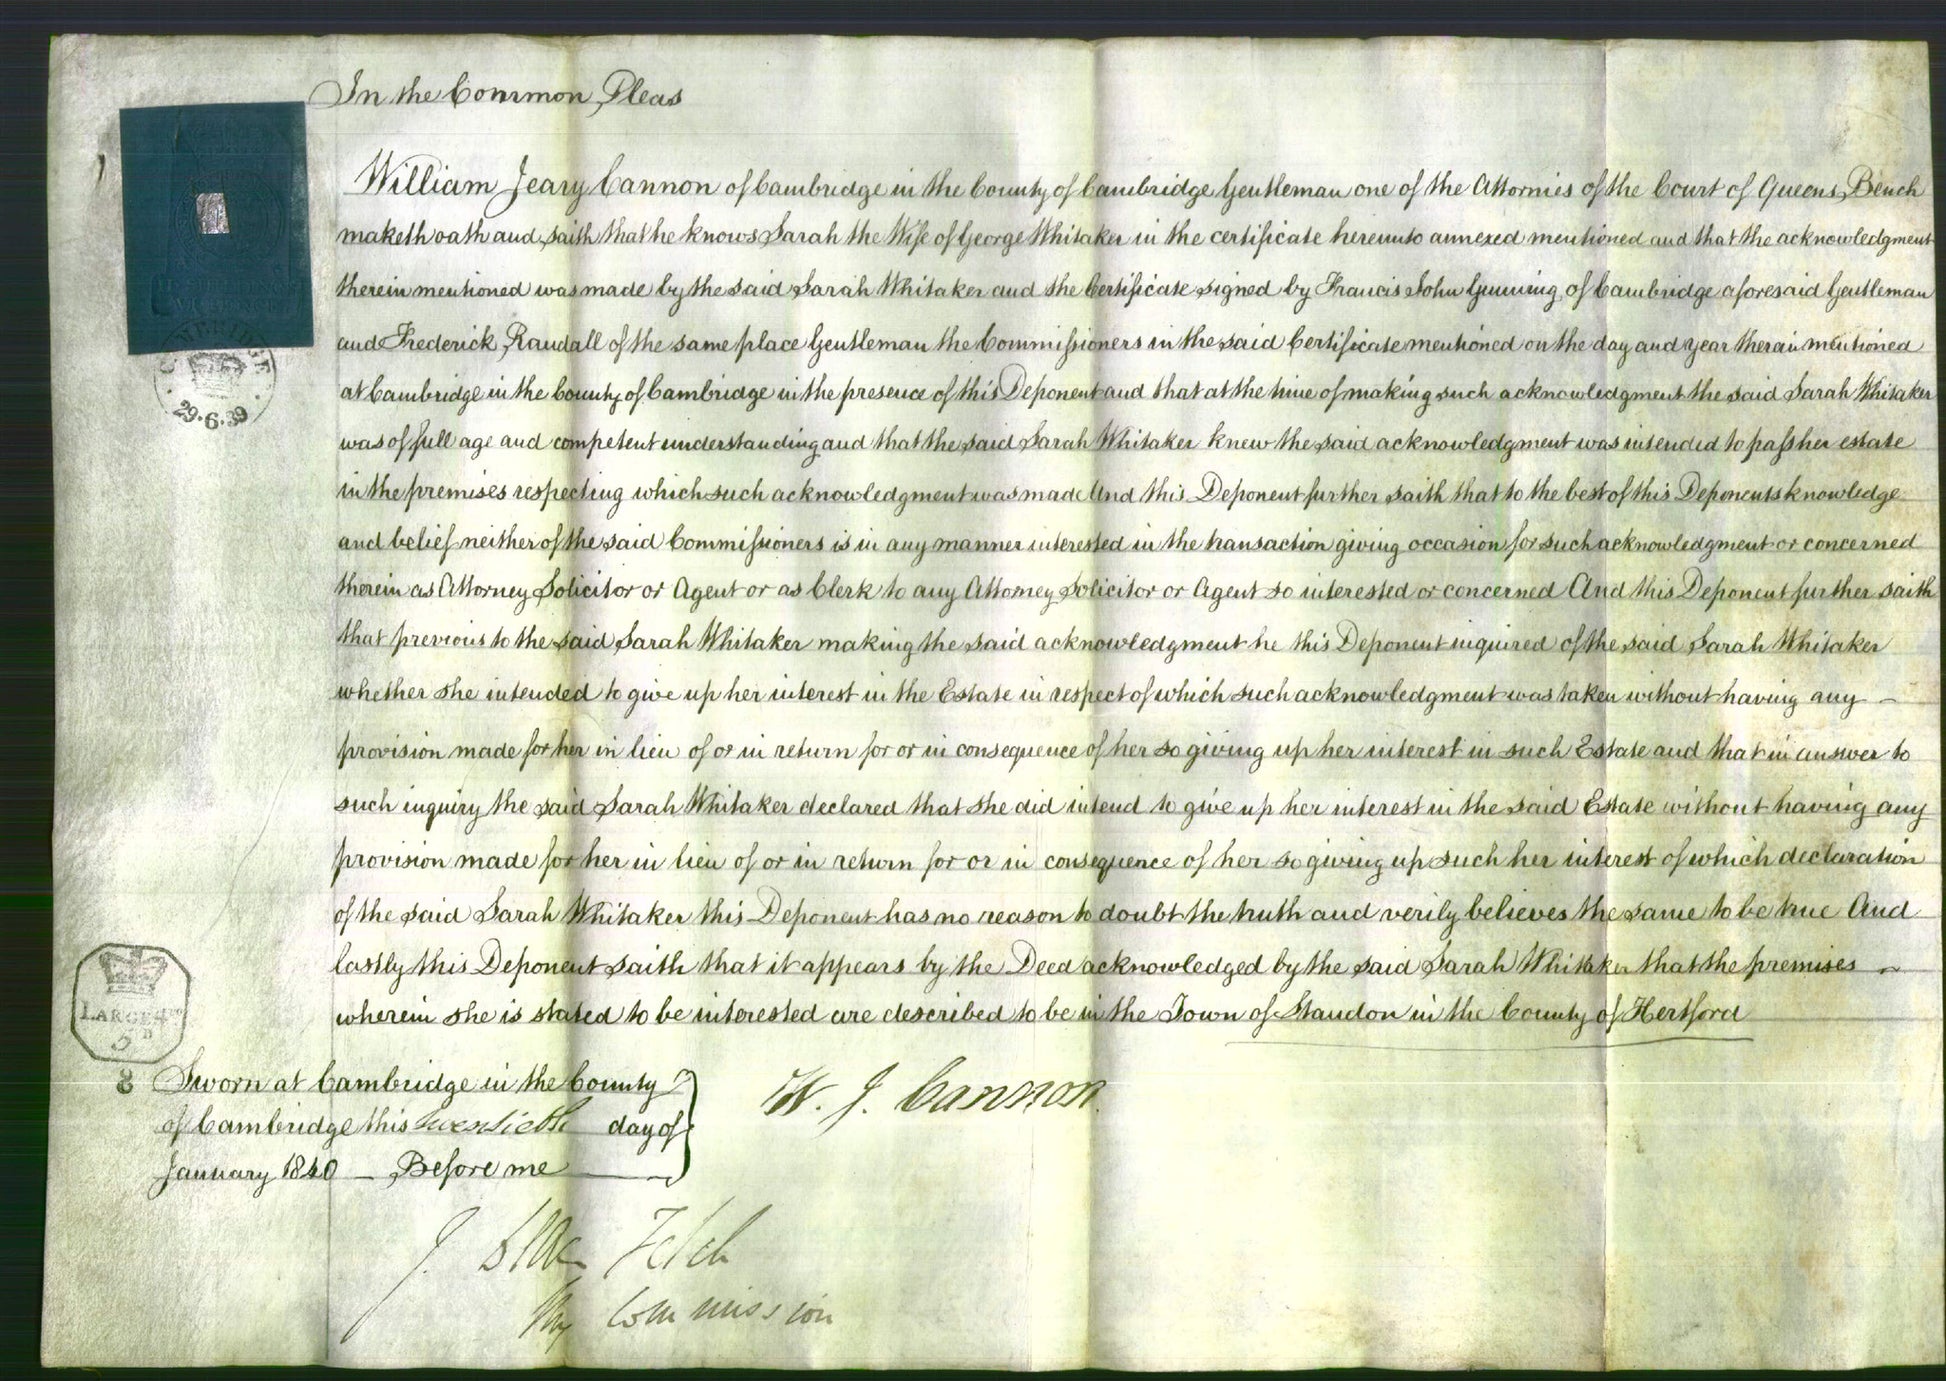 In the Common Pleas
William Jeary Cannon of Cambridge in the County of Cambridge Gentleman one of the Attornies of the Court of Queens Bench
maketh oath and saith that he knows Sarah the Wife of George Whitaker in the certificate hereunto annexed mentioned and that the acknowledgment
therein mentioned was made by the said Sarah Whitaker and the Certificate signed by Francis John Gunning of Cambridge aforesaid Gentleman
and Frederick Randall of the same place Gentleman the Commissioners in the said Certificate mentioned on the day and year therein mentioned
at Cambridge in the County of Cambridge in the presence of this Deponent and that at the time of making such acknowledgment the said Sarah Whitaker
29.6.39
was of full age and competent understanding and that the said Sarah Whitaker knew the said acknowledgment was intended to pass her estate
in the premises respecting which such acknowledgment was made And this Deponent further saith that to the best of this Deponents knowledge
and belief neither of the said Commissioners is in any manner interested in the transaction giving occasion for such acknowledgment or concerned
therein as Attorney Solicitor or Agent or as Clerk to any Attorney Solicitor or Agent so interested or concerned And this Deponent further saith
that previous to the said Sarah Whitaker making the said acknowledgment he this Deponent inquired of the said Sarah Whitaker
whether she intended to give up her interest in the Estate in respect of which such acknowledgment was taken without having any
provision made for her in lieu of or in return for or in consequence of her so giving up her interest in such Estate and that in answer to
such inquiry the said Sarah Whitaker declared that she did intend to give up her interest in the said Estate without having any
provision made for her in lieu of or in return for or in consequence of her so giving up such her interest of which declaration
of the said Sarah Whitaker this Deponent has no reason to doubt the truth and verily believes the same to be true And
lastly this Deponent saith that it appears by the Deed acknowledged by the said Sarah Whitaker that the premises
wherein she is stated to be interested are described to be in the Town of Standon in the County of Hertford
LARGE
8
Sworn at Cambridge in the County
of Cambridge this twentieth day of
January 1840 — Before me
W. J. Cannon
J.
Commission